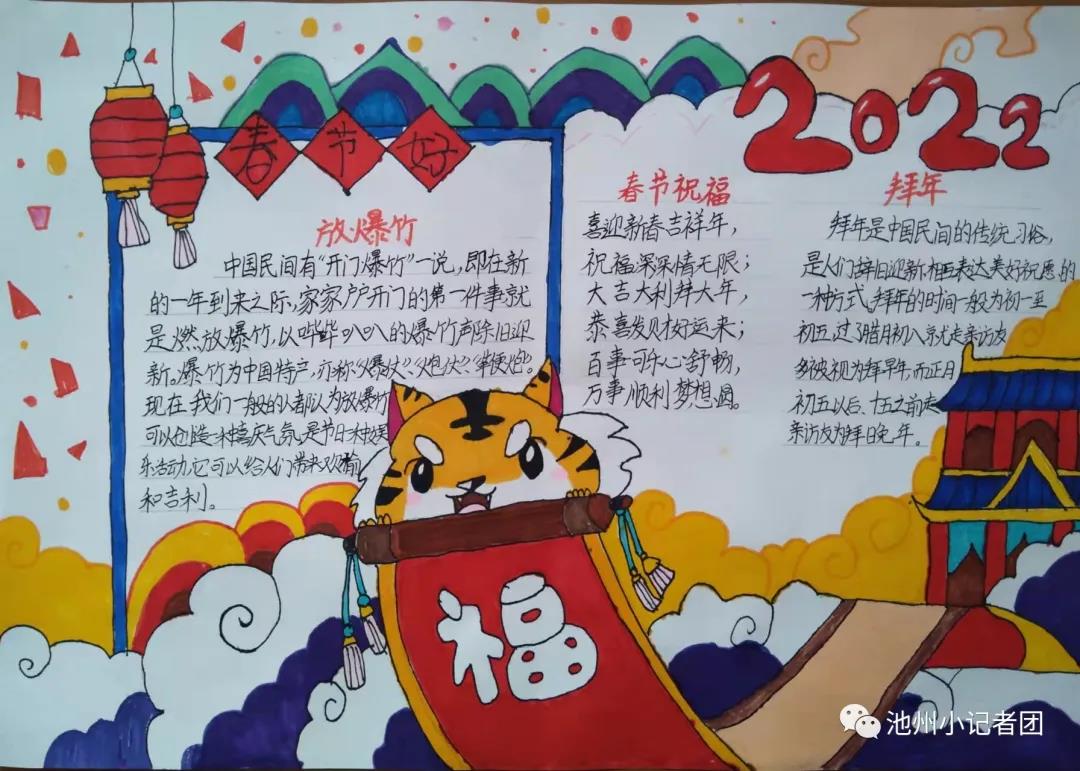 春节好
2022
放爆竹
中国民间有“开门爆竹”一说，即在新
的一年到来之际，家家户户开门的第一件事就
是燃放爆竹，以哔哔叭叭的爆竹声除旧迎
新。爆竹为中国特产，亦称“爆仗”、“炮仗”、“鞭炮”。
现在我们一般的人都认为放爆竹
可以创造一种喜庆气氛，是节日一种娱
乐活动，它可以给人们带来欢愉
和吉利。
春节祝福
喜迎新春吉祥年，
祝福深深情无限；
大吉大利拜大年，
恭喜发财好运来；
百事可乐心舒畅，
万事顺利梦想圆。
拜年
拜年是中国民间的传统习俗，
是人们辞旧迎新相互表达美好祝愿的
一种方式。拜年的时间一般为初一至
初五过了腊月初八就走亲访友
多被视为拜早年，而正月
初五以后、十五之前走
亲访友为拜晚年。
福
池州小记者团